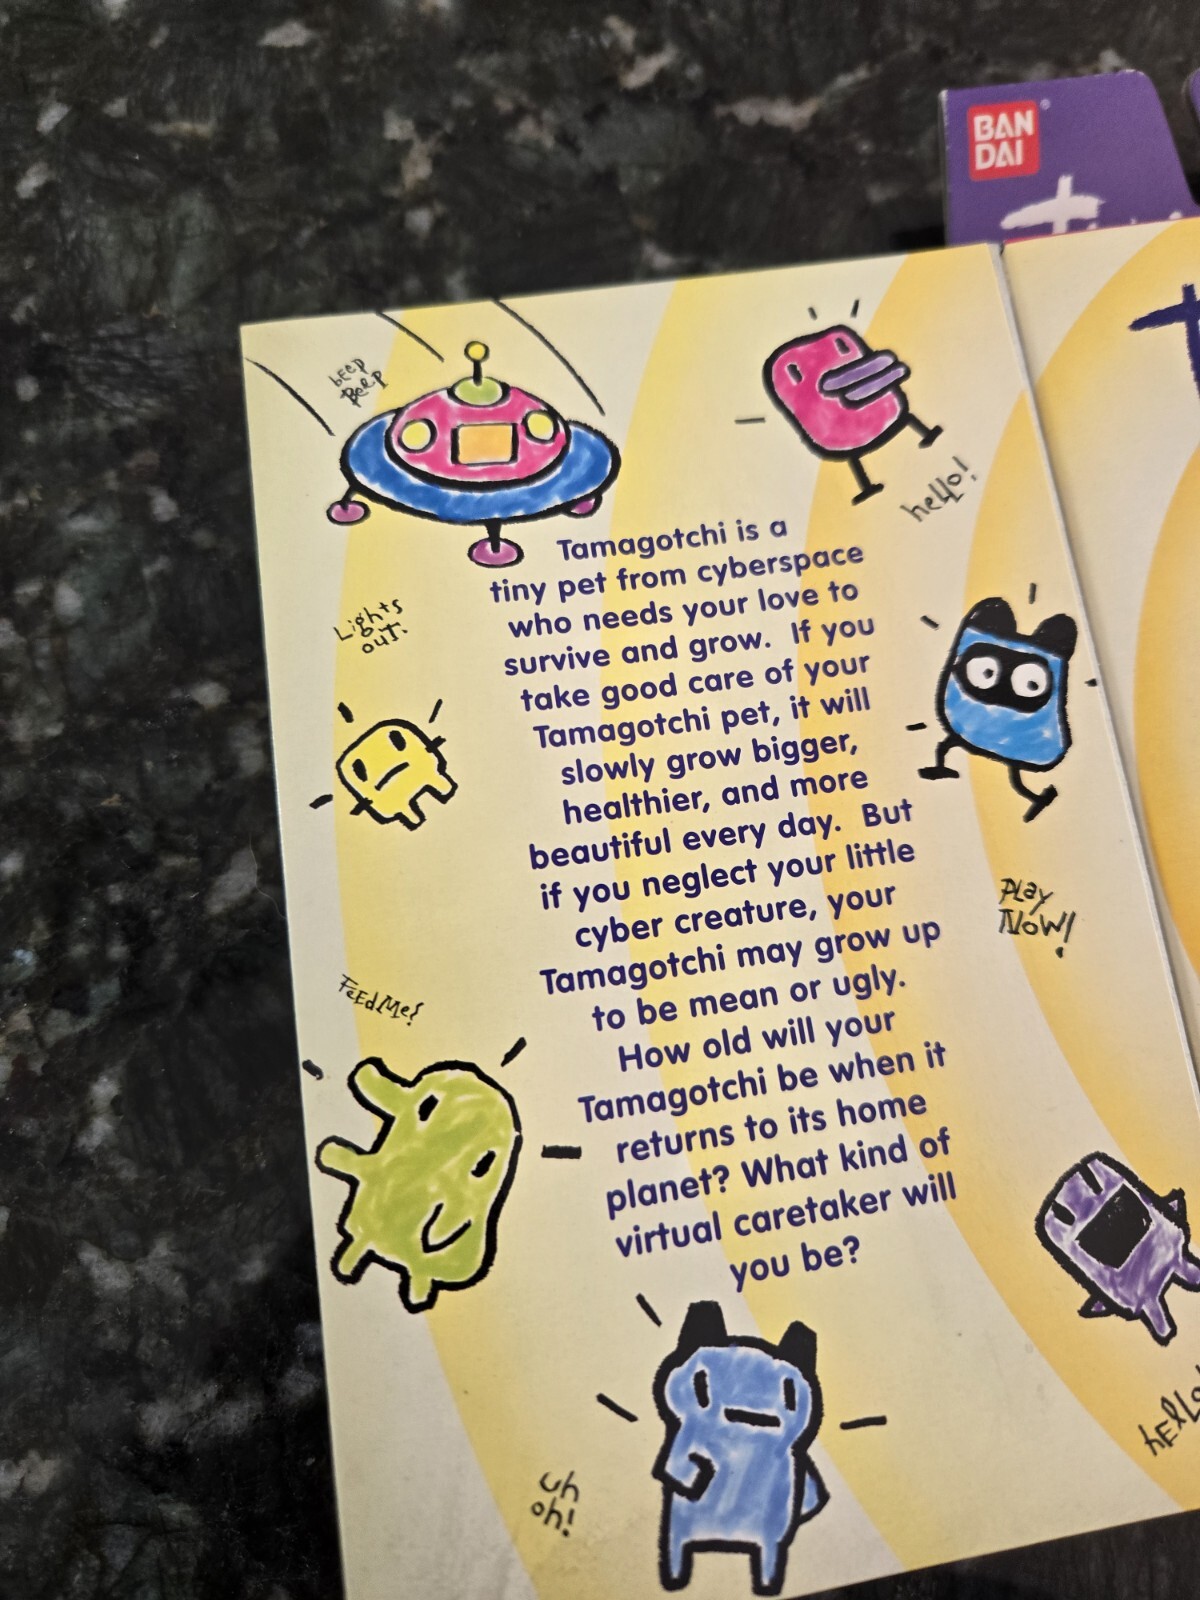 BAN
DAI
beep
Beep
hello!
Tamagotchi is a
tiny pet from cyberspace
who needs your love to
survive and grow. If you
take good care of your
Tamagotchi pet, it will
slowly grow bigger,
healthier, and more
beautiful every day. But
if you neglect your little
cyber creature, your
Tamagotchi may grow up
to be mean or ugly.
How old will your
Tamagotchi be when it
returns to its home
planet? What kind of
virtual caretaker will
you be?
Lights
out.
PLay
NoW!
FeEdMe!
hElLo
uh
oh!